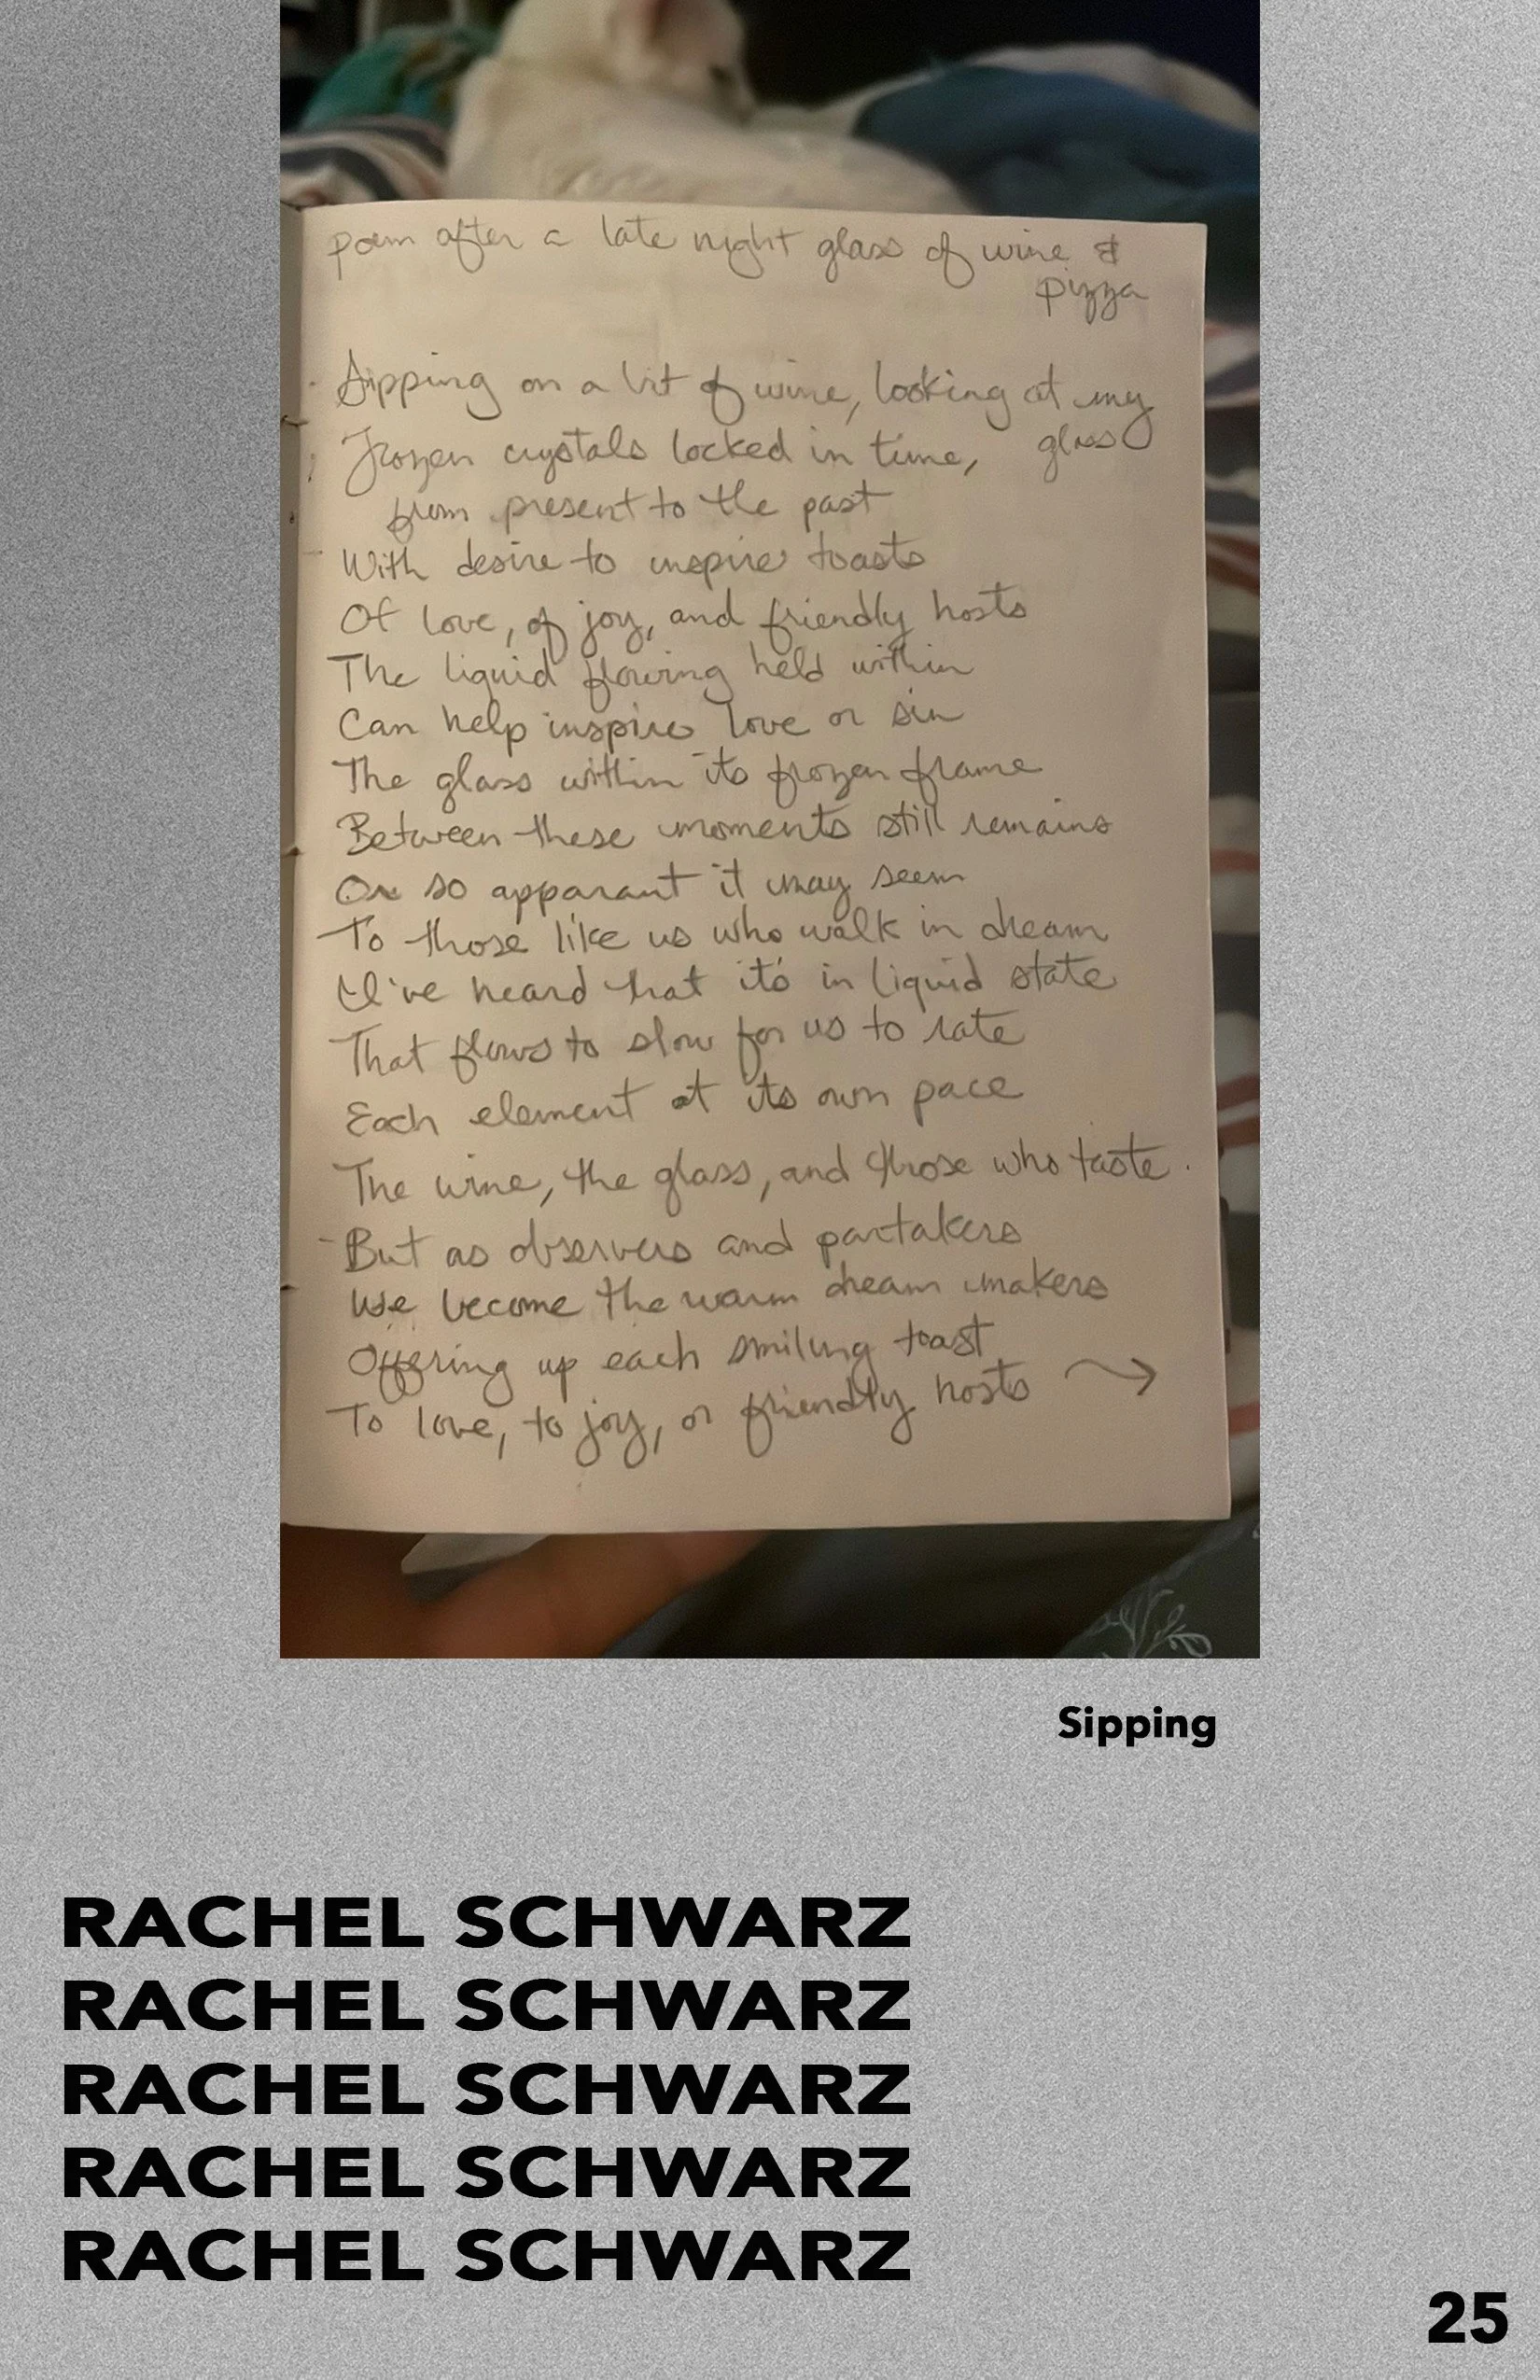 poem after a late night glass of wine &
pizza
Sipping on a bit of wine, looking at my
glass
Frozen crystals locked in time,
from present to the past
With desire to inspire toasts
Of love, of joy, and friendly hosts
The liquid flowing held within
Can help inspire love or sin
The glass within its frozen frame
Between these moments still remains
Or so apparant it may seem
To those like us who walk in dream
I've heard that it's in liquid state
That flows to slow for us to rate
Each element at its own pace
The wine, the glass, and those who taste.
But as observers and partakers
We become the warm dream makers
Offering up each smiling toast
To love, to joy, or friendly hosts →
Sipping
RACHEL SCHWARZ
RACHEL SCHWARZ
RACHEL SCHWARZ
RACHEL SCHWARZ
RACHEL SCHWARZ
25